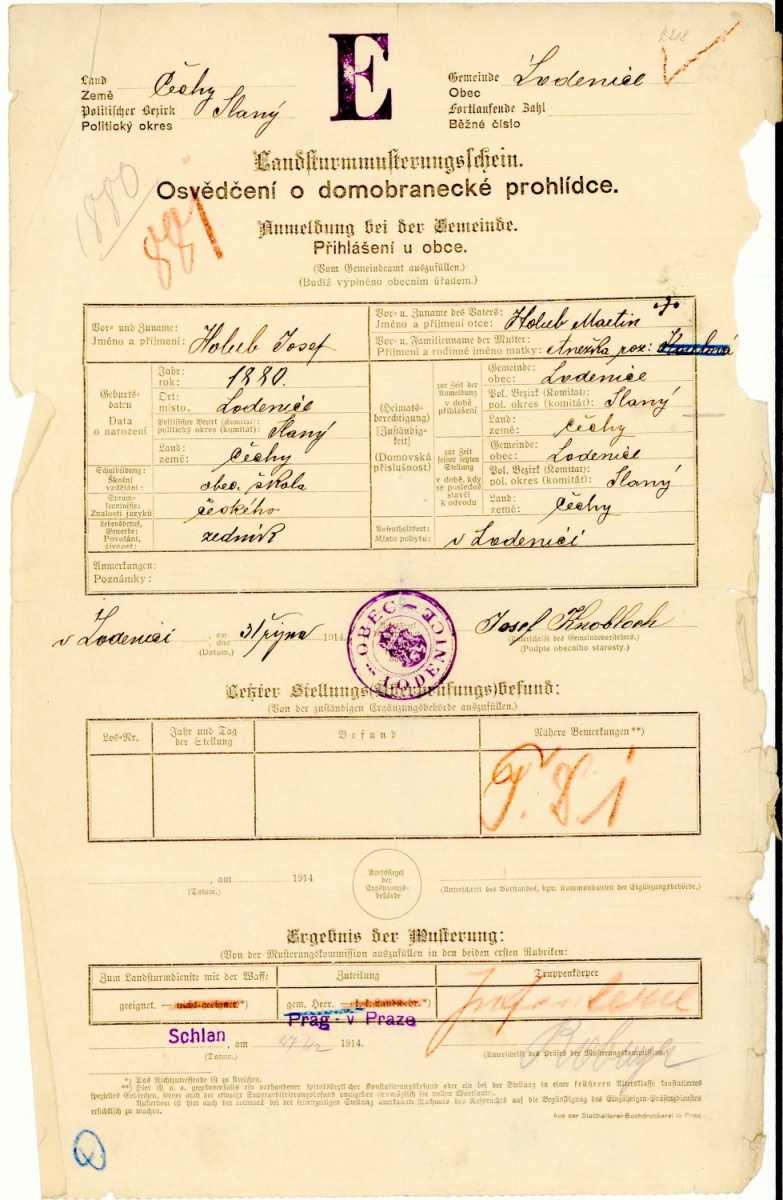 2218
E
Land
Země Čechy
Politischer Bezirk
Politický okres Slaný
Gemeinde
Obec Lodenice
Fortlaufende Zahl
Běžné číslo
Landsturmmusterungsschein.
Osvědčení o domobranecké prohlídce.
1880
881
Anmeldung bei der Gemeinde.
Přihlášení u obce.
(Vom Gemeindeamt auszufüllen.)
(Budiž vyplněno obecním úřadem.)
Vor- und Zuname:
Jméno a příjmení: Holub Josef
Vor- u. Zuname des Vaters:
Jméno a příjmení otce: Holub Martin
Vor- u. Familienname der Mutter:
Příjmení a rodinné jméno matky: Anežka roz:
Geburtsdaten
Data o narození
Jahr:
rok: 1880.
Ort:
místo. Lodenice
Politischer Bezirk (Komitat):
politický okres (komitát): Slaný
Land:
země: Čechy
Schulbildung:
Školní vzdělání: obec. škola
Sprachkenntnisse:
Znalosti jazyků českého
Lebensberuf, Gewerbe:
Povolání, živnost: zedník
(Heimatsberechtigung)
[Zuständigkeit]
(Domovská příslušnost)
zur Zeit der Anmeldung
v době přihlášení
Gemeinde:
obec: Lodenice
Pol. Bezirk (Komitat):
pol. okres (komitát): Slaný
Land:
země: Čechy
zur Zeit seiner letzten Stellung
v době, kdy se posledně stavěl k odvodu
Gemeinde:
obec: Lodenice
Pol. Bezirk (Komitat):
pol. okres (komitát): Slaný
Land:
země: Čechy
Aufenthaltsort:
Místo pobytu: v Lodenici
Anmerkungen:
Poznámky:
v Lodenici, am
dne 31 října 1914.
(Datum.)
OBEC LODENICE
Josef Knobloch
(Unterschrift des Gemeindevorstehers.)
(Podpis obecního starosty.)
Letzter Stellungs(Überprüfungs)befund:
(Von der zuständigen Ergänzungsbehörde auszufüllen.)
Los-Nr.
Jahr und Tag der Stellung
Befund
Nähere Bemerkungen**)
, am 1914
(Datum.)
Amtssiegel der Ergänzungsbehörde
(Unterschrift des Vorstandes, bzw. Kommandanten der Ergänzungsbehörde.)
Ergebnis der Musterung:
(Von der Musterungskommission auszufüllen in den beiden ersten Rubriken:
Zum Landsturmdienste mit der Waffe
Zuteilung
Truppenkörper
geeignet. — nicht geeignet *)
gem. Heer. — k. k. Landwehr.*)
Prag - v Praze
Schlan, am 1914.
(Datum.)
(Unterschrift des Leiters der Musterungskommission.)
*) Das Nichtzutreffende ist zu streichen.
**) Hier ist u. a. gegebenenfalls ein vorhandener spitalsärztlicher Konstatierungsbefund oder ein bei der Stellung in einer früheren Altersklasse konstatiertes
spezielles Gebrechen, ferner auch der etwaige Superarbitrierungsbefund anzugeben (womöglich im vollen Wortlaute).
Außerdem ist hier auch der eventuell bei der seinerzeitigen Stellung anerkannte Nachweis des Anspruches auf die Begünstigung des Einjährigen-Präsenzdienstes
ersichtlich zu machen.
Aus der Statthalterei-Buchdruckerei in Prag.